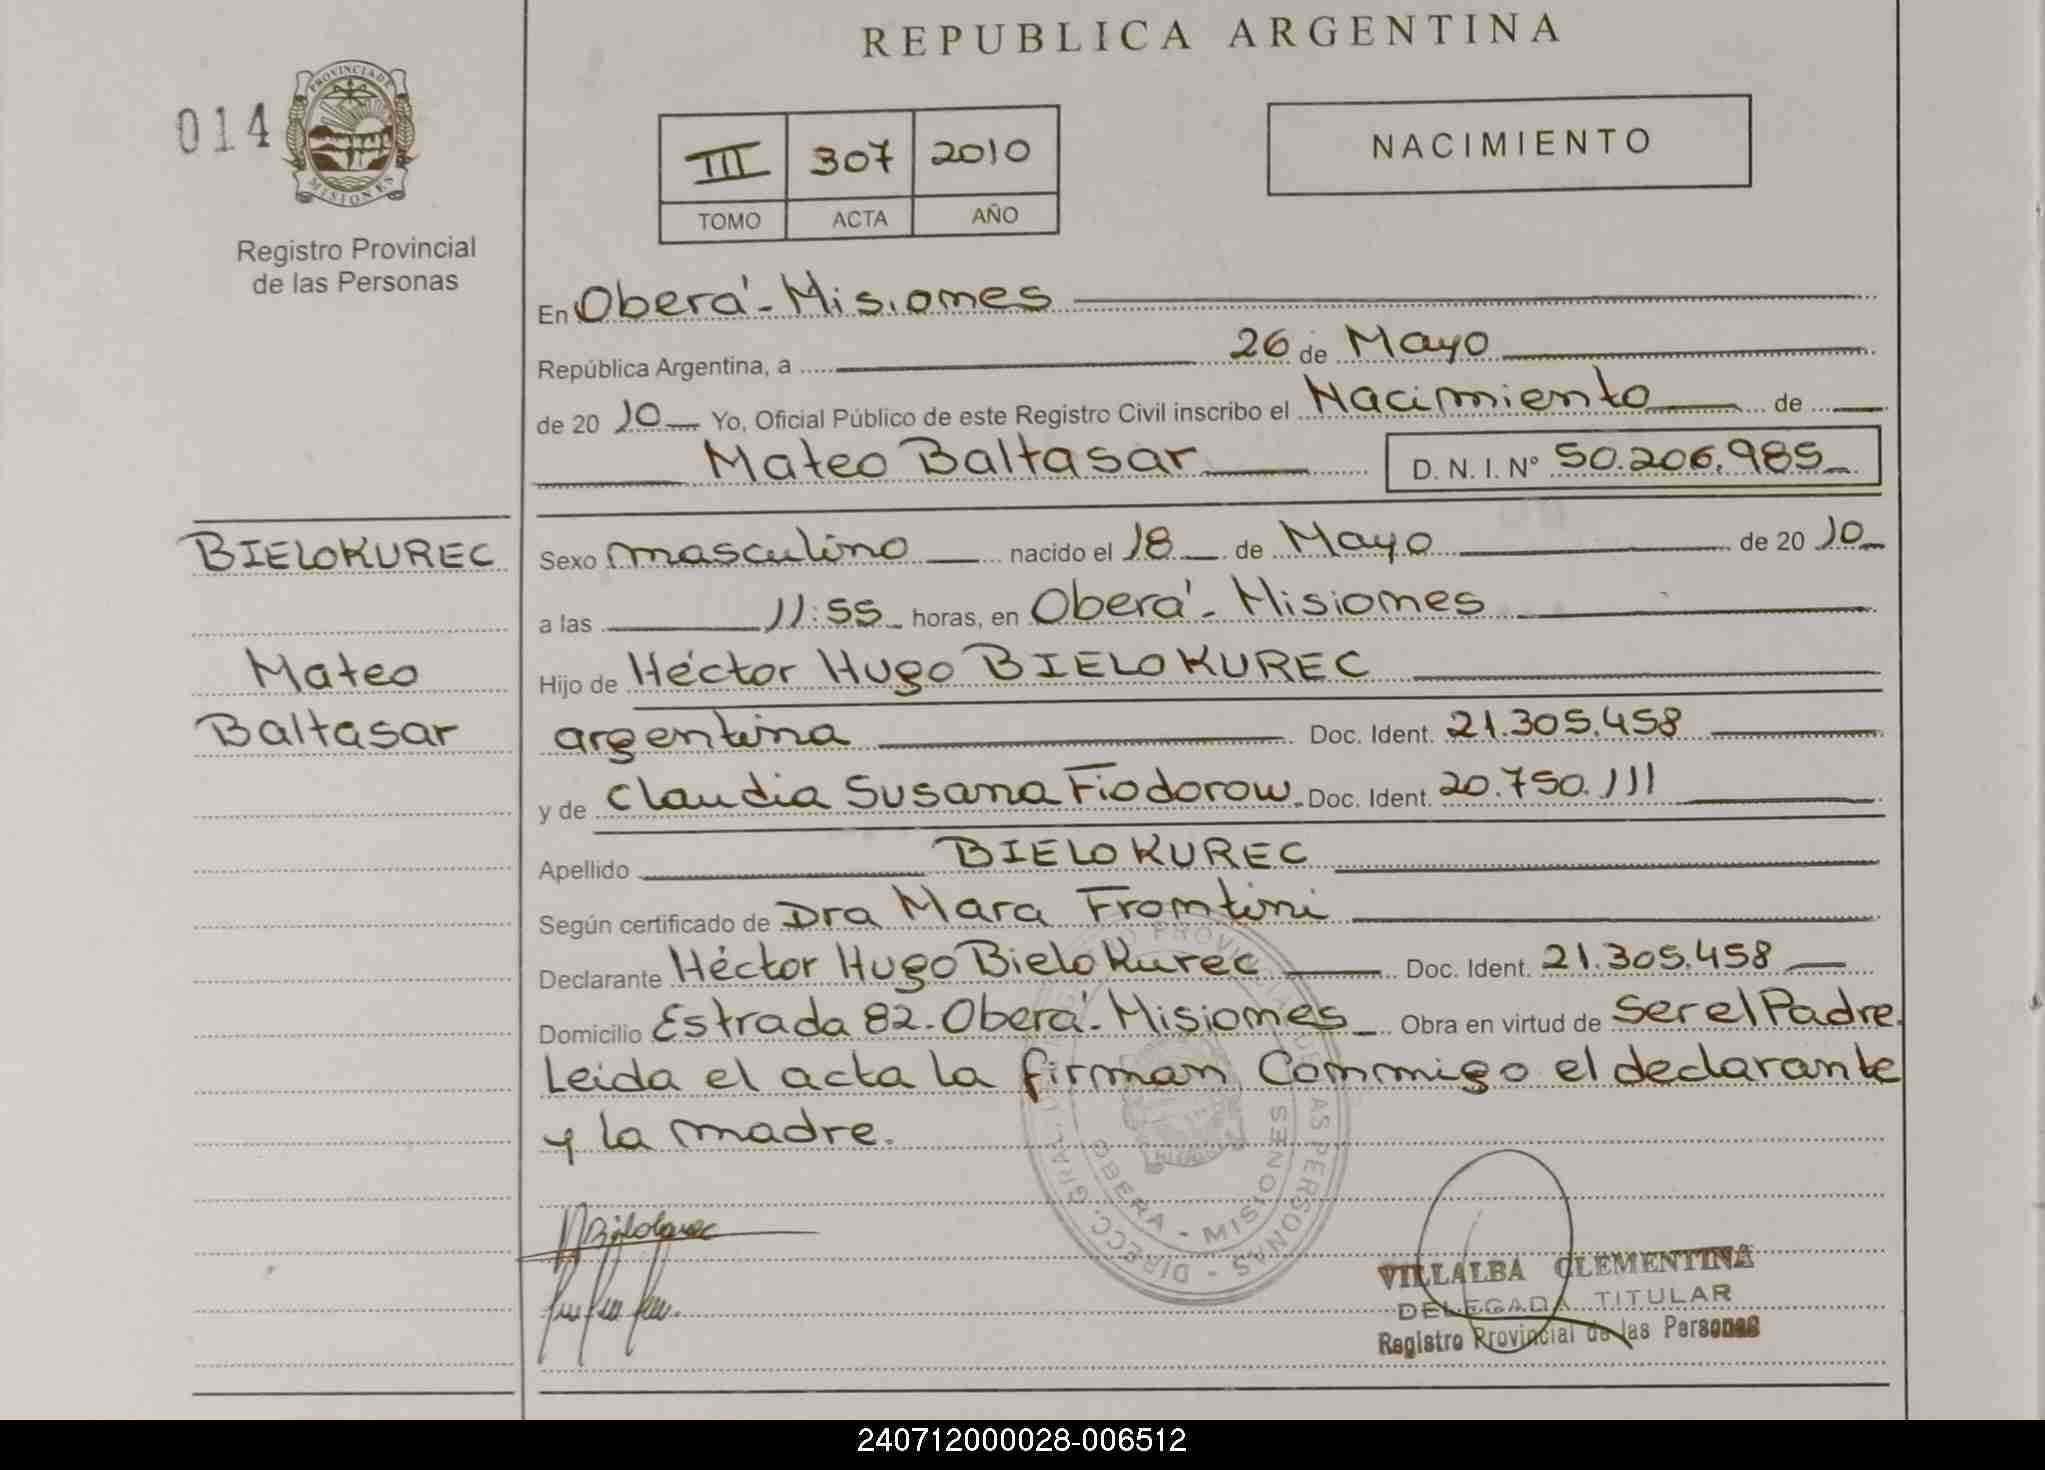 REPUBLICA ARGENTINA
014
PROVINCIA DE
MISIONES
Registro Provincial
de las Personas
III 307 2010
TOMO ACTA AÑO
NACIMIENTO
En Oberá - Misiones
República Argentina, a 26 de Mayo
de 20 10 Yo, Oficial Público de este Registro Civil inscribo el Nacimiento de
Mateo Baltasar D. N. I. N° 50.206.985
BIELOKUREC
Mateo
Baltasar
Sexo masculino nacido el 18 de Mayo de 20 10
a las 11:55 horas, en Oberá - Misiones
Hijo de Héctor Hugo BIELOKUREC
argentina Doc. Ident. 21.305.458
y de Claudia Susana Fiodorow. Doc. Ident. 20.750.111
Apellido BIELOKUREC
Según certificado de Dra Mara Frontini
Declarante Héctor Hugo Bielokurec Doc. Ident. 21.305.458
Domicilio Estrada 82 - Oberá - Misiones Obra en virtud de ser el Padre.
Leida el acta la firman Conmigo el declarante
y la madre.
OBERA - MISIONES
VILLALBA CLEMENTINA
DELEGADA TITULAR
Registro Provincial de las Personas
240712000028-006512